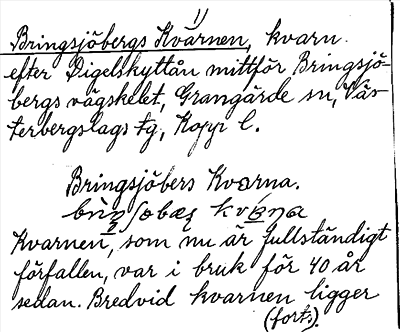 1)
Bringsjöbergs Kvarnen, kvarn.
efter Digelskyttån mittför Bringsjö-
bergs vägskelet, Grangärde sn, Väs-
terbergslags tg, Kopp l.
Bringsjöbers Kvarna.
Kvarnen, som nu är fullständigt
förfallen, var i bruk för 40 år
sedan. Bredvid kvarnen ligger
(forts.)